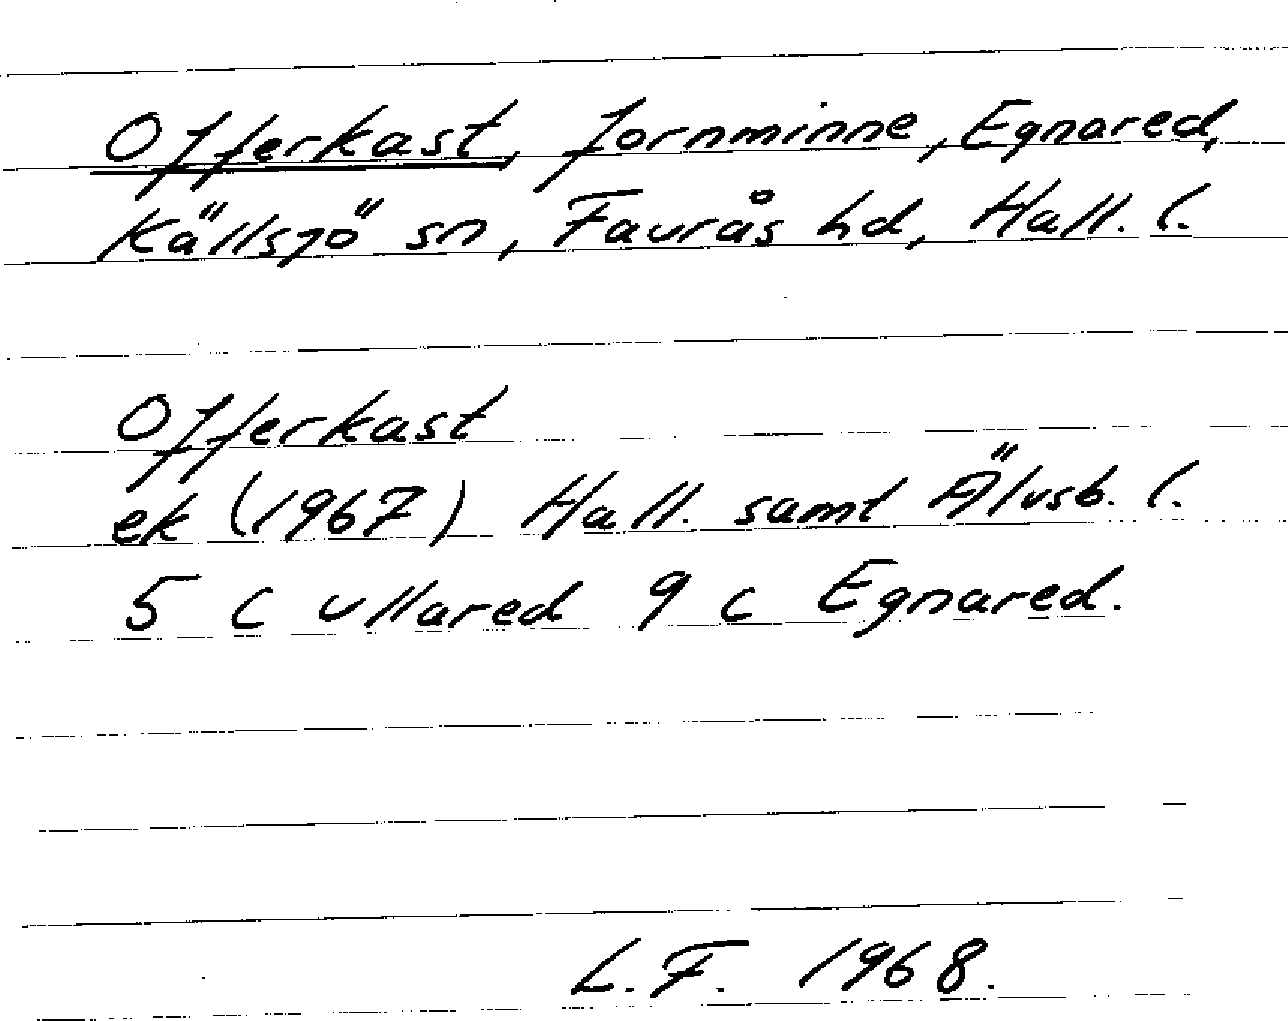 Offerkast, fornminne, Egnared,
Källsjö sn, Faurås hd, Hall. l.
Offerkast
ek (1967) Hall. samt Älvsb. l.
5 C Ullared 9 c Egnared.
L.F. 1968.